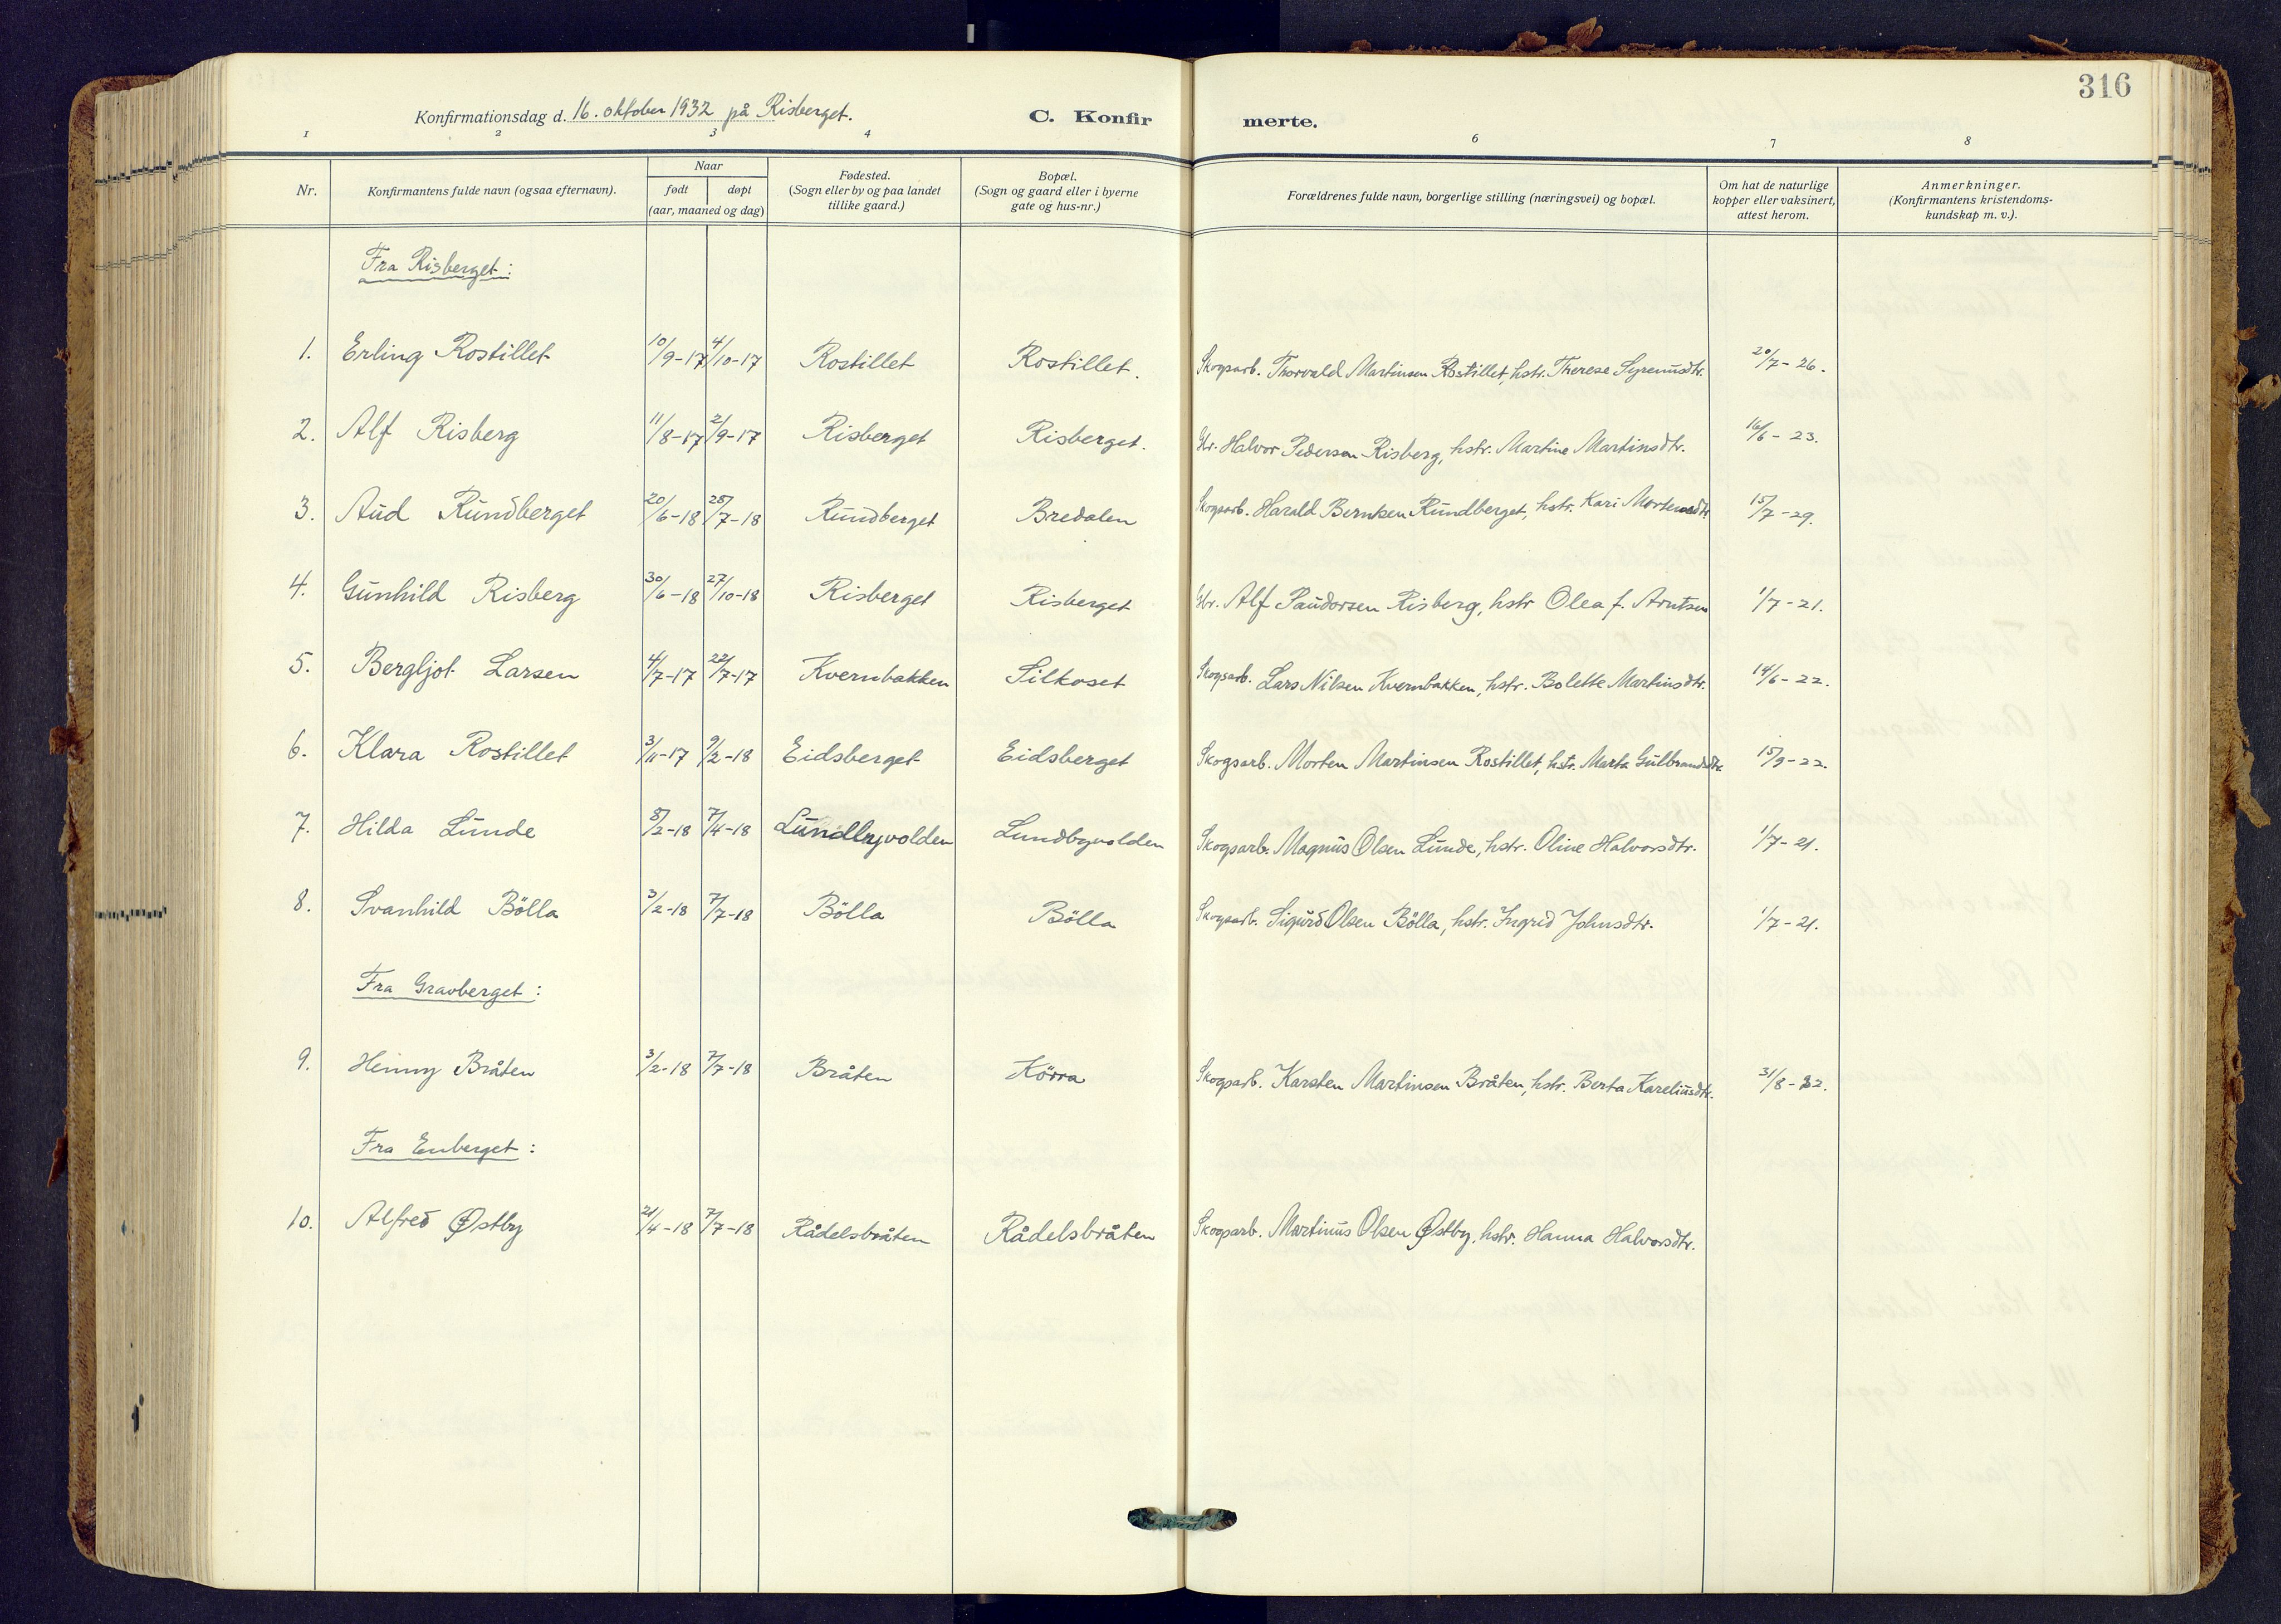 316
Konfirmationsdag d. 16. oktober 1932 på Risberget.
C. Konfirmerte.
1 2 3 4 6 7 8
Nr.
Konfirmantens fulde navn (ogsaa efternavn).
Naar
født døpt
(aar, maaned og dag)
Fødested.
(Sogn eller by og paa landet
tillike gaard.)
Bopæl.
(Sogn og gaard eller i byerne
gate og hus-nr.)
Forældrenes fulde navn, borgerlige stilling (næringsvei) og bopæl.
Om hat de naturlige
kopper eller vaksinert,
attest herom.
Anmerkninger.
(Konfirmantens kristendoms-
kundskap m. v.).
Fra Risberget:
1. Erling Rostillet 10/9-17 4/10-17 Rostillet Rostillet. Skogsarb. Thorvald Martinsen Rostillet, hstr. Therese Syrenusdtr. 20/7-26.
2. Alf Risberg 11/8-17 2/9-17 Risberget Risberget. Halvor Pedersen Risberg, hstr. Martine Martinsdtr. 16/6-23.
3. Aud Rundberget 20/6-18 28/7-18 Rundberget Bredalen Skogsarb. Harald Berntsen Rundberget, hstr. Kari Mortensdtr 15/7-29.
4. Gunhild Risberg 30/6-18 27/10-18 Risberget Risberget Alf Paudorsen Risberg, hstr Olea f. Arntsen 1/7-21.
5. Bergljot Larsen 4/7-17 22/7-17 Kvernbakken Silkoset Skogsarb. Lars Nilsen Kvernbakken, hstr. Bolette Martinsdtr. 14/6-22.
6. Klara Rostillet 3/11-17 9/2-18 Eidsberget Eidsberget Skogsarb. Morten Martinsen Rostillet, hstr. Marta Gulbrandsdtr 15/9-22.
7. Hilda Lunde 8/2-18 7/4-18 Lundbyvolden Lundbyvolden Skogsarb. Magnus Olsen Lunde, hstr. Oline Halvorsdtr. 1/7-21.
8. Svanhild Bölla 3/2-18 7/7-18 Bölla Bölla Skogsarb. Sigurd Olsen Bölla, hstr. Ingrid Johnsdtr. 1/7-21.
Fra Gravberget:
9. Henny Bråten 3/2-18 7/7-18 Bråten Körra Skogsarb. Karsten Martinsen Bråten, hstr. Berta Kareliusdtr. 31/8-32.
Fra Enberget:
10. Alfred Østby 21/4-18 7/7-18 Rådelsbråten Rådelsbråten Skogsarb. Martinus Olsen Østby, hstr. Hanna Halvorsdtr.